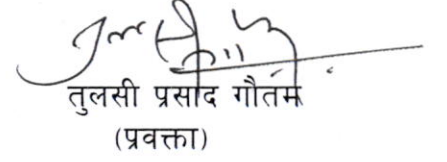 तुलसी प्रसाद गौतम
(प्रवक्ता)